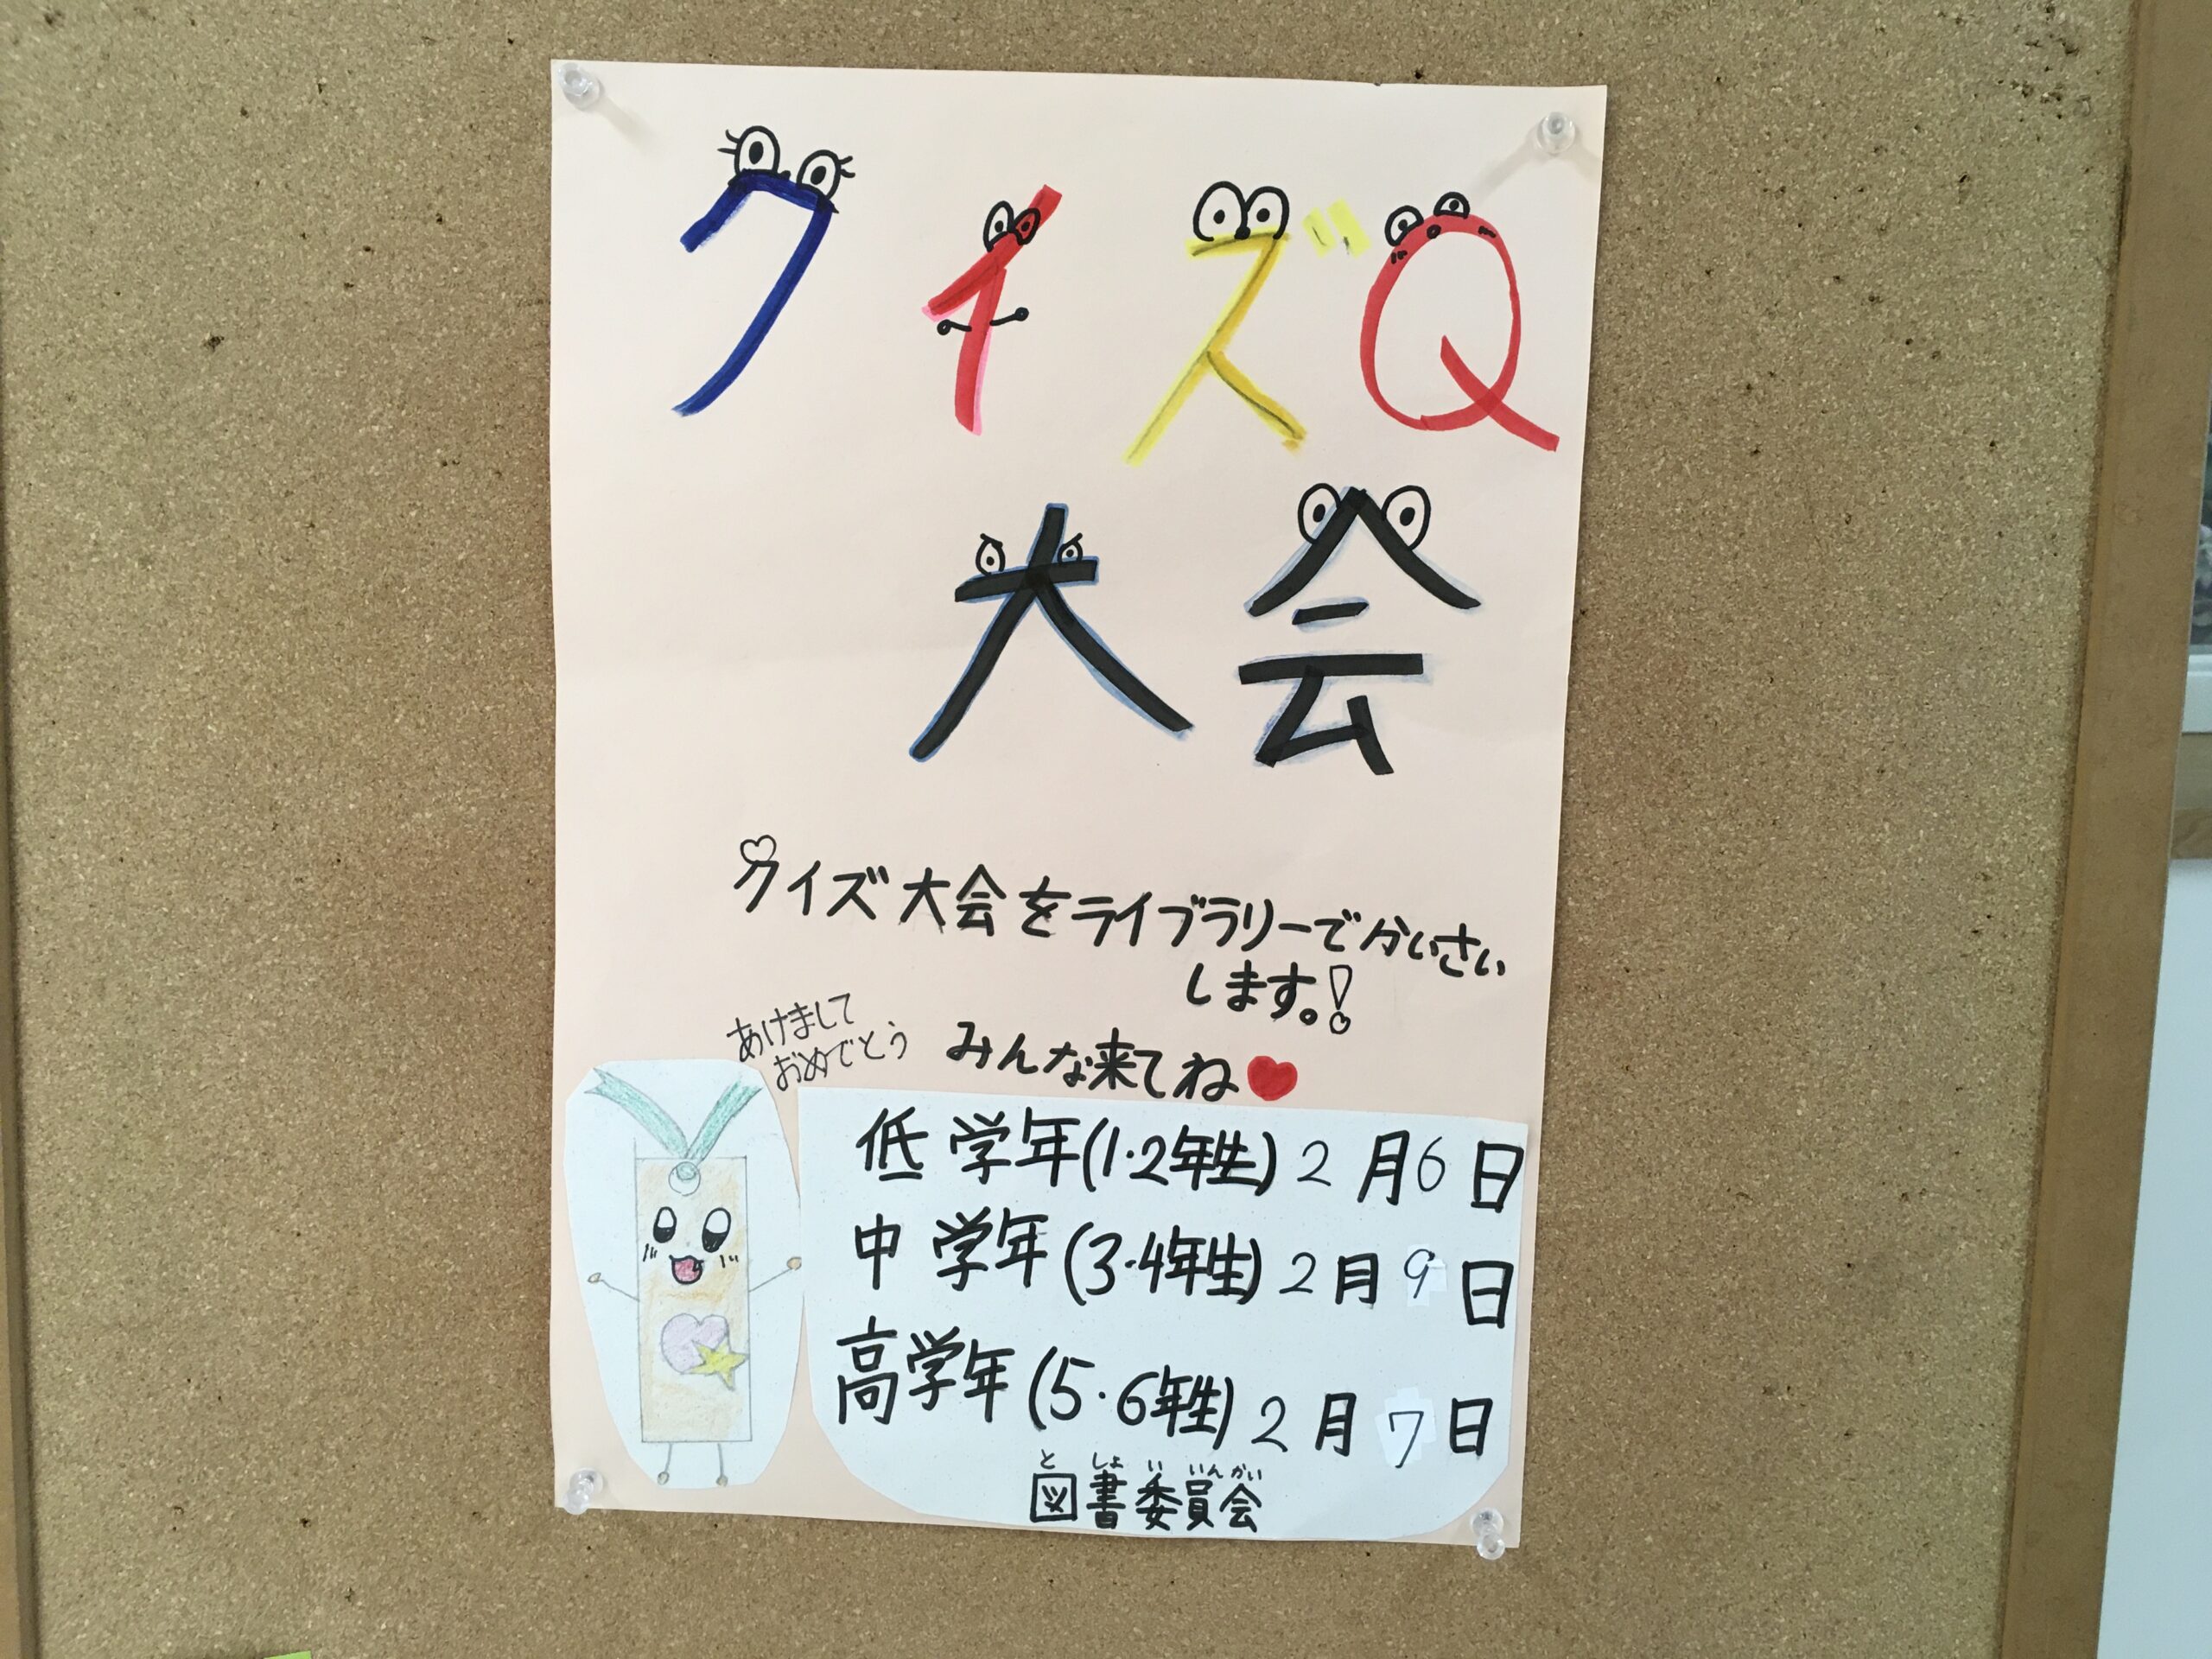 クイズQ
大会
クイズ大会をライブラリーでかいさい
します。!
あけまして
おめでとう
みんな来てね
低学年(1・2年生)2月6日
中学年(3・4年生)2月9日
高学年(5・6年生)2月7日
と しょ い いん かい
図書委員会